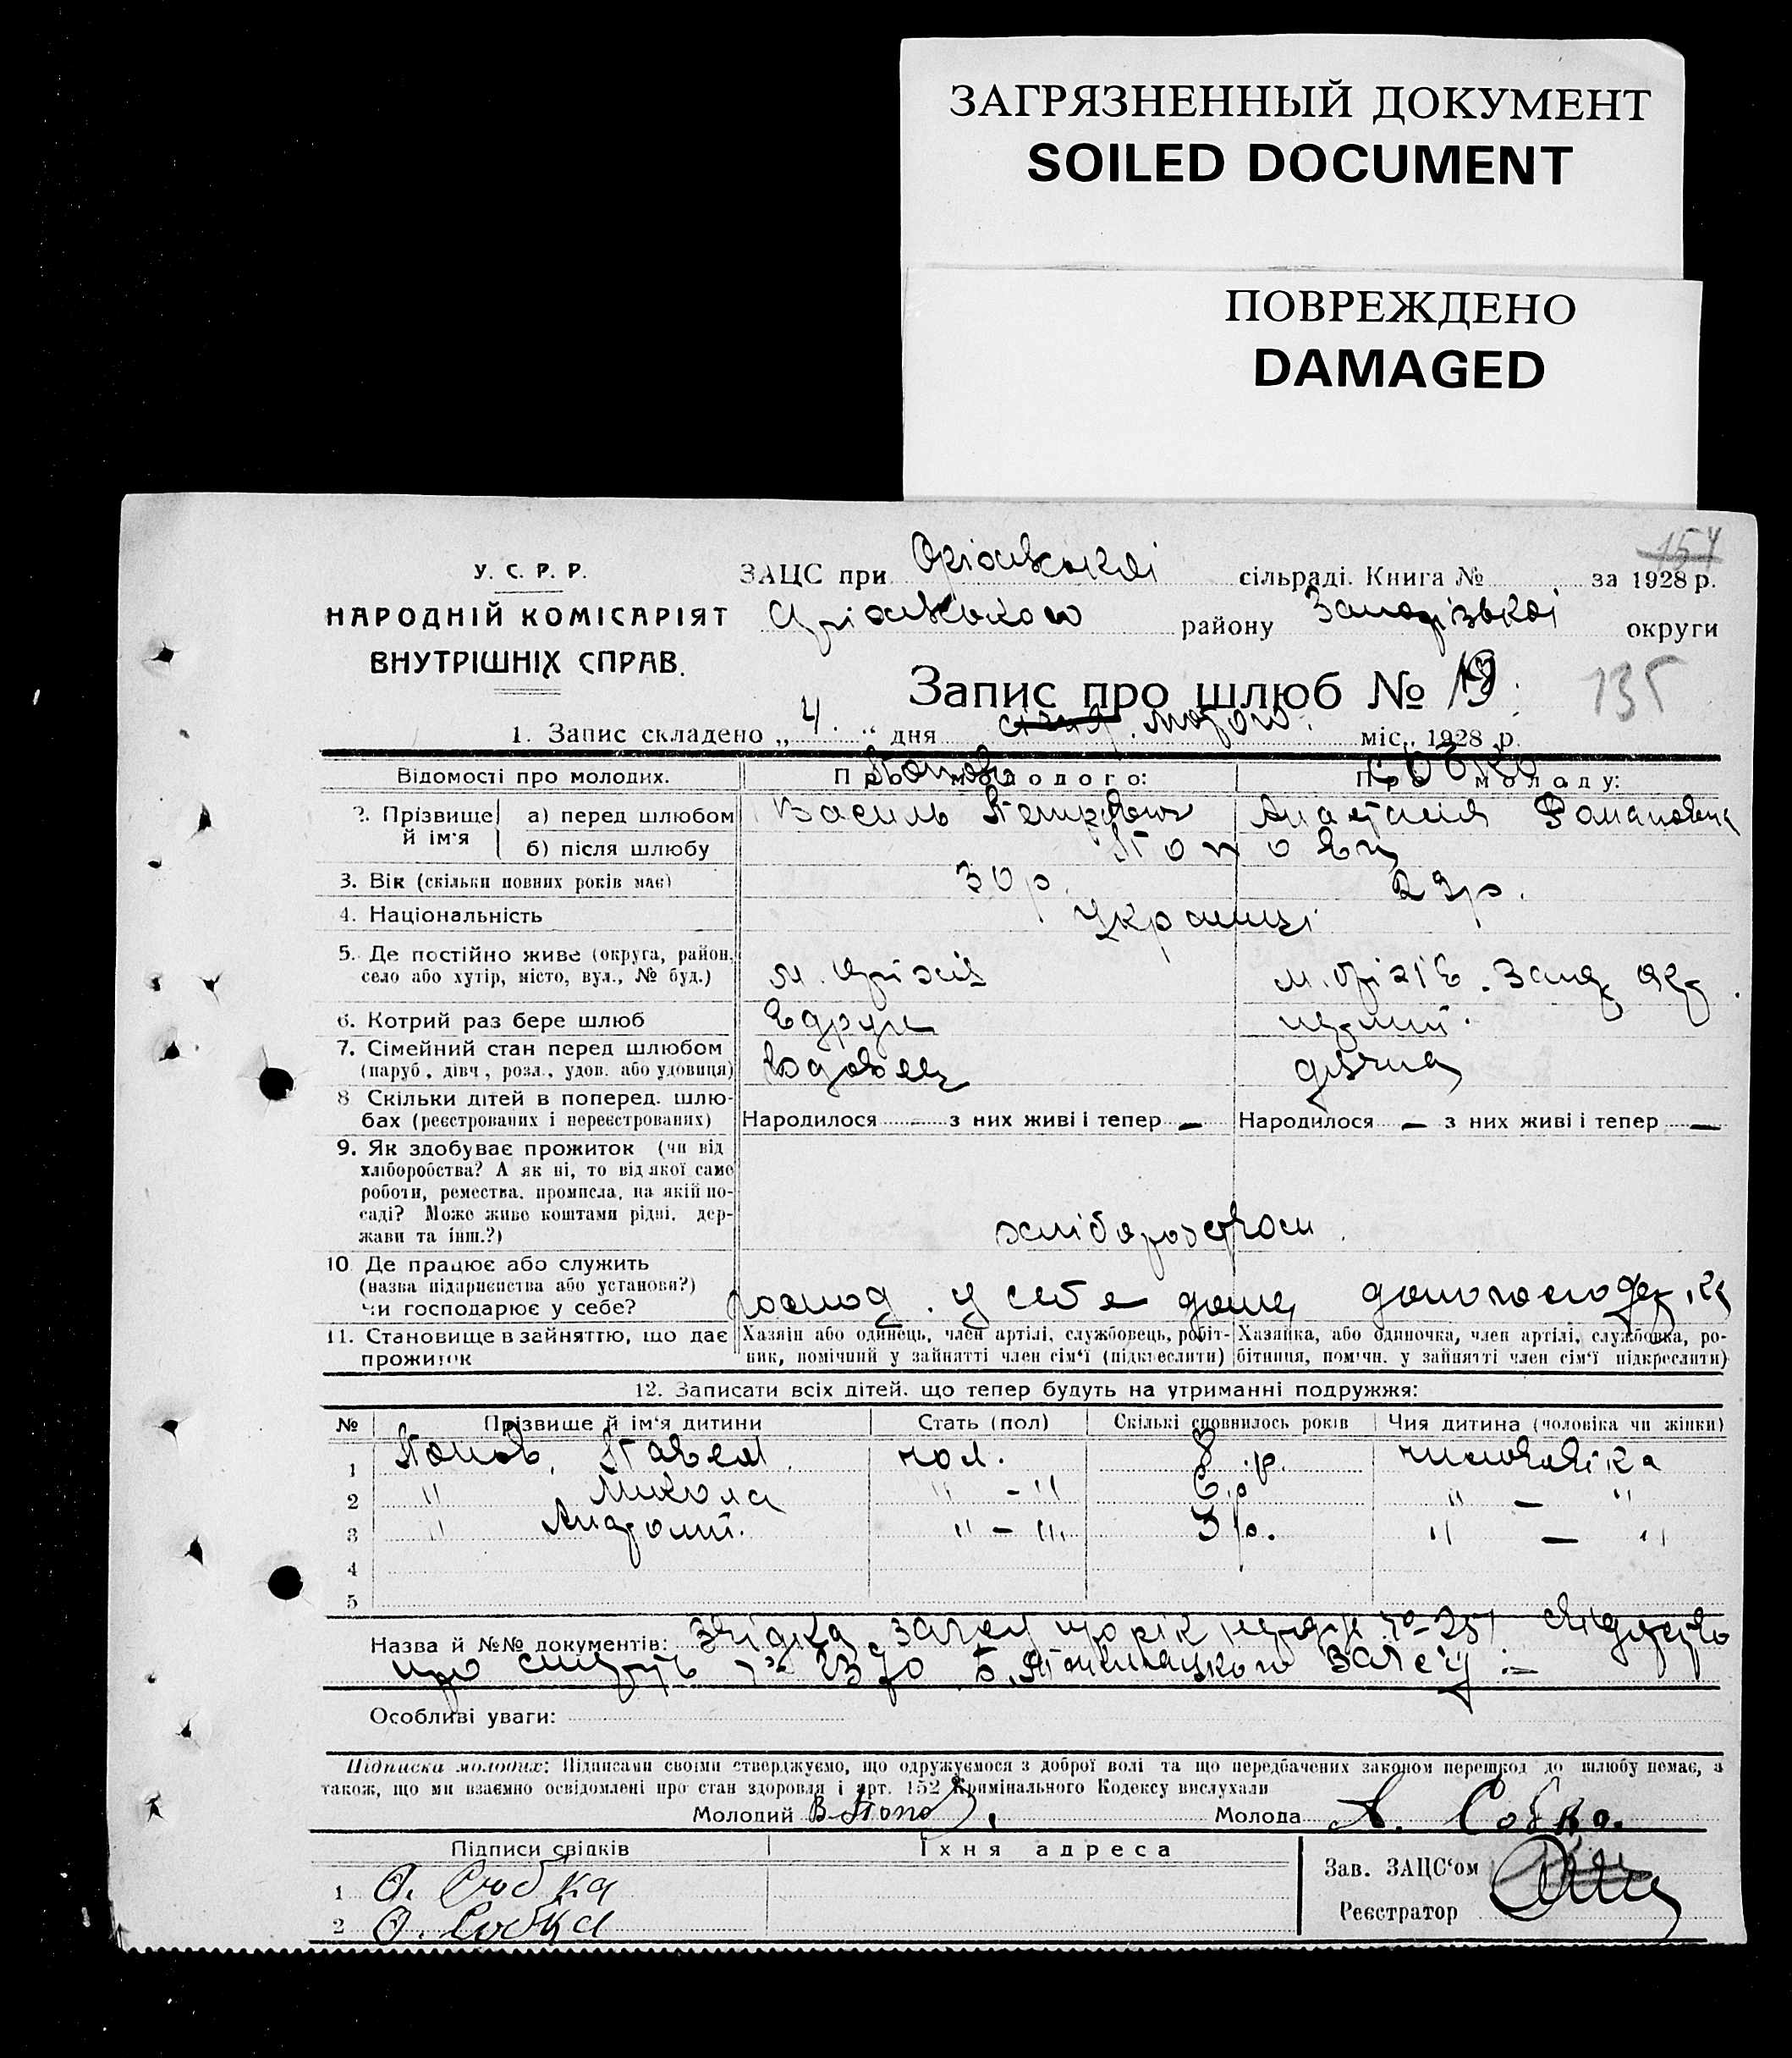 ЗАГРЯЗНЕННЫЙ ДОКУМЕНТ
SOILED DOCUMENT
ПОВРЕЖДЕНО
DAMAGED
154
У. С. Р. Р.
НАРОДНІЙ КОМІСАРІЯТ
ВНУТРІШНІХ СПРАВ.
ЗАЦС при Оріхівській сільраді. Книга № за 1928 р.
Оріхівського району Запорізької округи
Запис про шлюб № 19
135
1. Запис складено „4“ дня лютого міс. 1928 р.
Відомості про молодих. Про молодого: Про молоду:
Попов Собко
2. Прізвище й ім'я а) перед шлюбом Василь Анастасія Романовна
б) після шлюбу Попови
3. Вік (скільки повних років має) 30 р. 29 р.
4. Національність Українці
5. Де постійно живе (округа, район, село або хутір, місто, вул., № буд.) м. Оріхів м. Оріхів. Запор. окр.
6. Котрий раз бере шлюб вдруге перший
7. Сімейний стан перед шлюбом (паруб., дівч., розл., удов. або удовиця) вдовець дівчина
8 Скільки дітей в поперед. шлюбах (реєстрованих і нереєстрованих) Народилося — з них живі і тепер — Народилося — з них живі і тепер —
9. Як здобуває прожиток (чи від
хліборобства? А як ні, то від якої саме
роботи, ремества, промисла, на якій посаді? Може живе коштами рідні, держави та інш.?)
хліборобством
10 Де працює або служить
(назва підприємства або установи?)
чи господарює у себе?
господ. у себе дома
11. Становище в зайняттю, що дає прожиток
Хазяїн або одинець, член артілі, службовець, робітник, помічний у зайнятті член сім'ї (підкреслити)
Хазяйка, або одиночка, член артілі, службовка, робітниця, помічн. у зайнятті член сім'ї підкреслити)
12. Записати всіх дітей, що тепер будуть на утриманні подружжя:
№ Прізвище й ім'я дитини Стать (пол) Скількі сповнилось років Чия дитина (чоловіка чи жінки)
1 Попов, Павел чол. 8 р. чоловіка
2 " Микола " - " 6 р. " — "
3 " Андрій " - " 3 р. " — "
4
5
Назва й №№ документів:
про смерть
Особливі уваги:
Підписка молодих: Підписами своїми стверджуємо, що одружуємося з доброї волі та що передбачених законом перешкод до шлюбу немає, а
також, що ми взаємно освідомлені про стан здоровля і арт. 152 Кримінального Кодексу вислухали
Молодий В Попов. Молода А. Собко.
Підписи свідків Їхня адреса
Зав. ЗАЦС'ом
1 О. Собка
Реєстратор
2 О. Собка